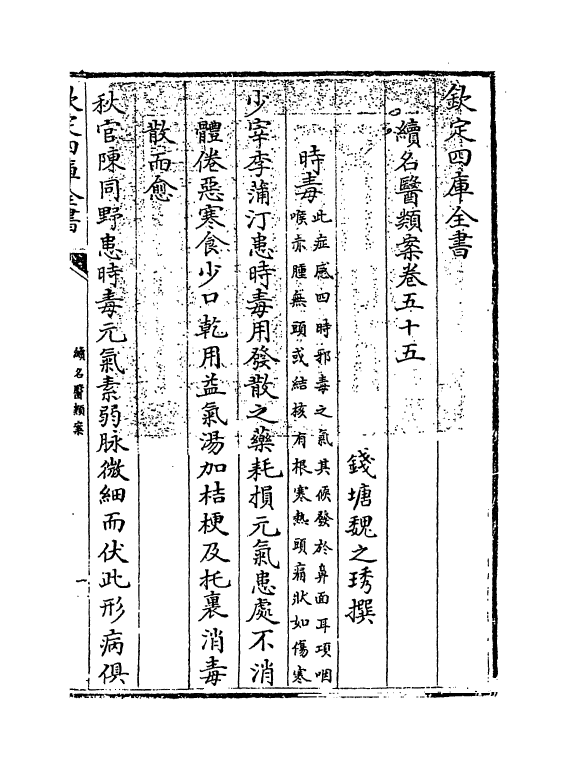 欽定四庫全書
續名醫類案卷五十五
錢塘魏之琇撰
時毒
此症感四時邪毒之氣其候發於鼻面耳項咽
喉赤腫無頭或結核有根寒熱頭痛狀如傷寒
少宰李蒲汀患時毒用發散之藥耗損元氣患處不消
體倦惡寒食少口乾用益氣湯加桔梗及托裏消毒
散而愈
秋官陳同野患時毒元氣素弱脉微細而伏此形病俱
欽定四庫全書
續名醫類案
一